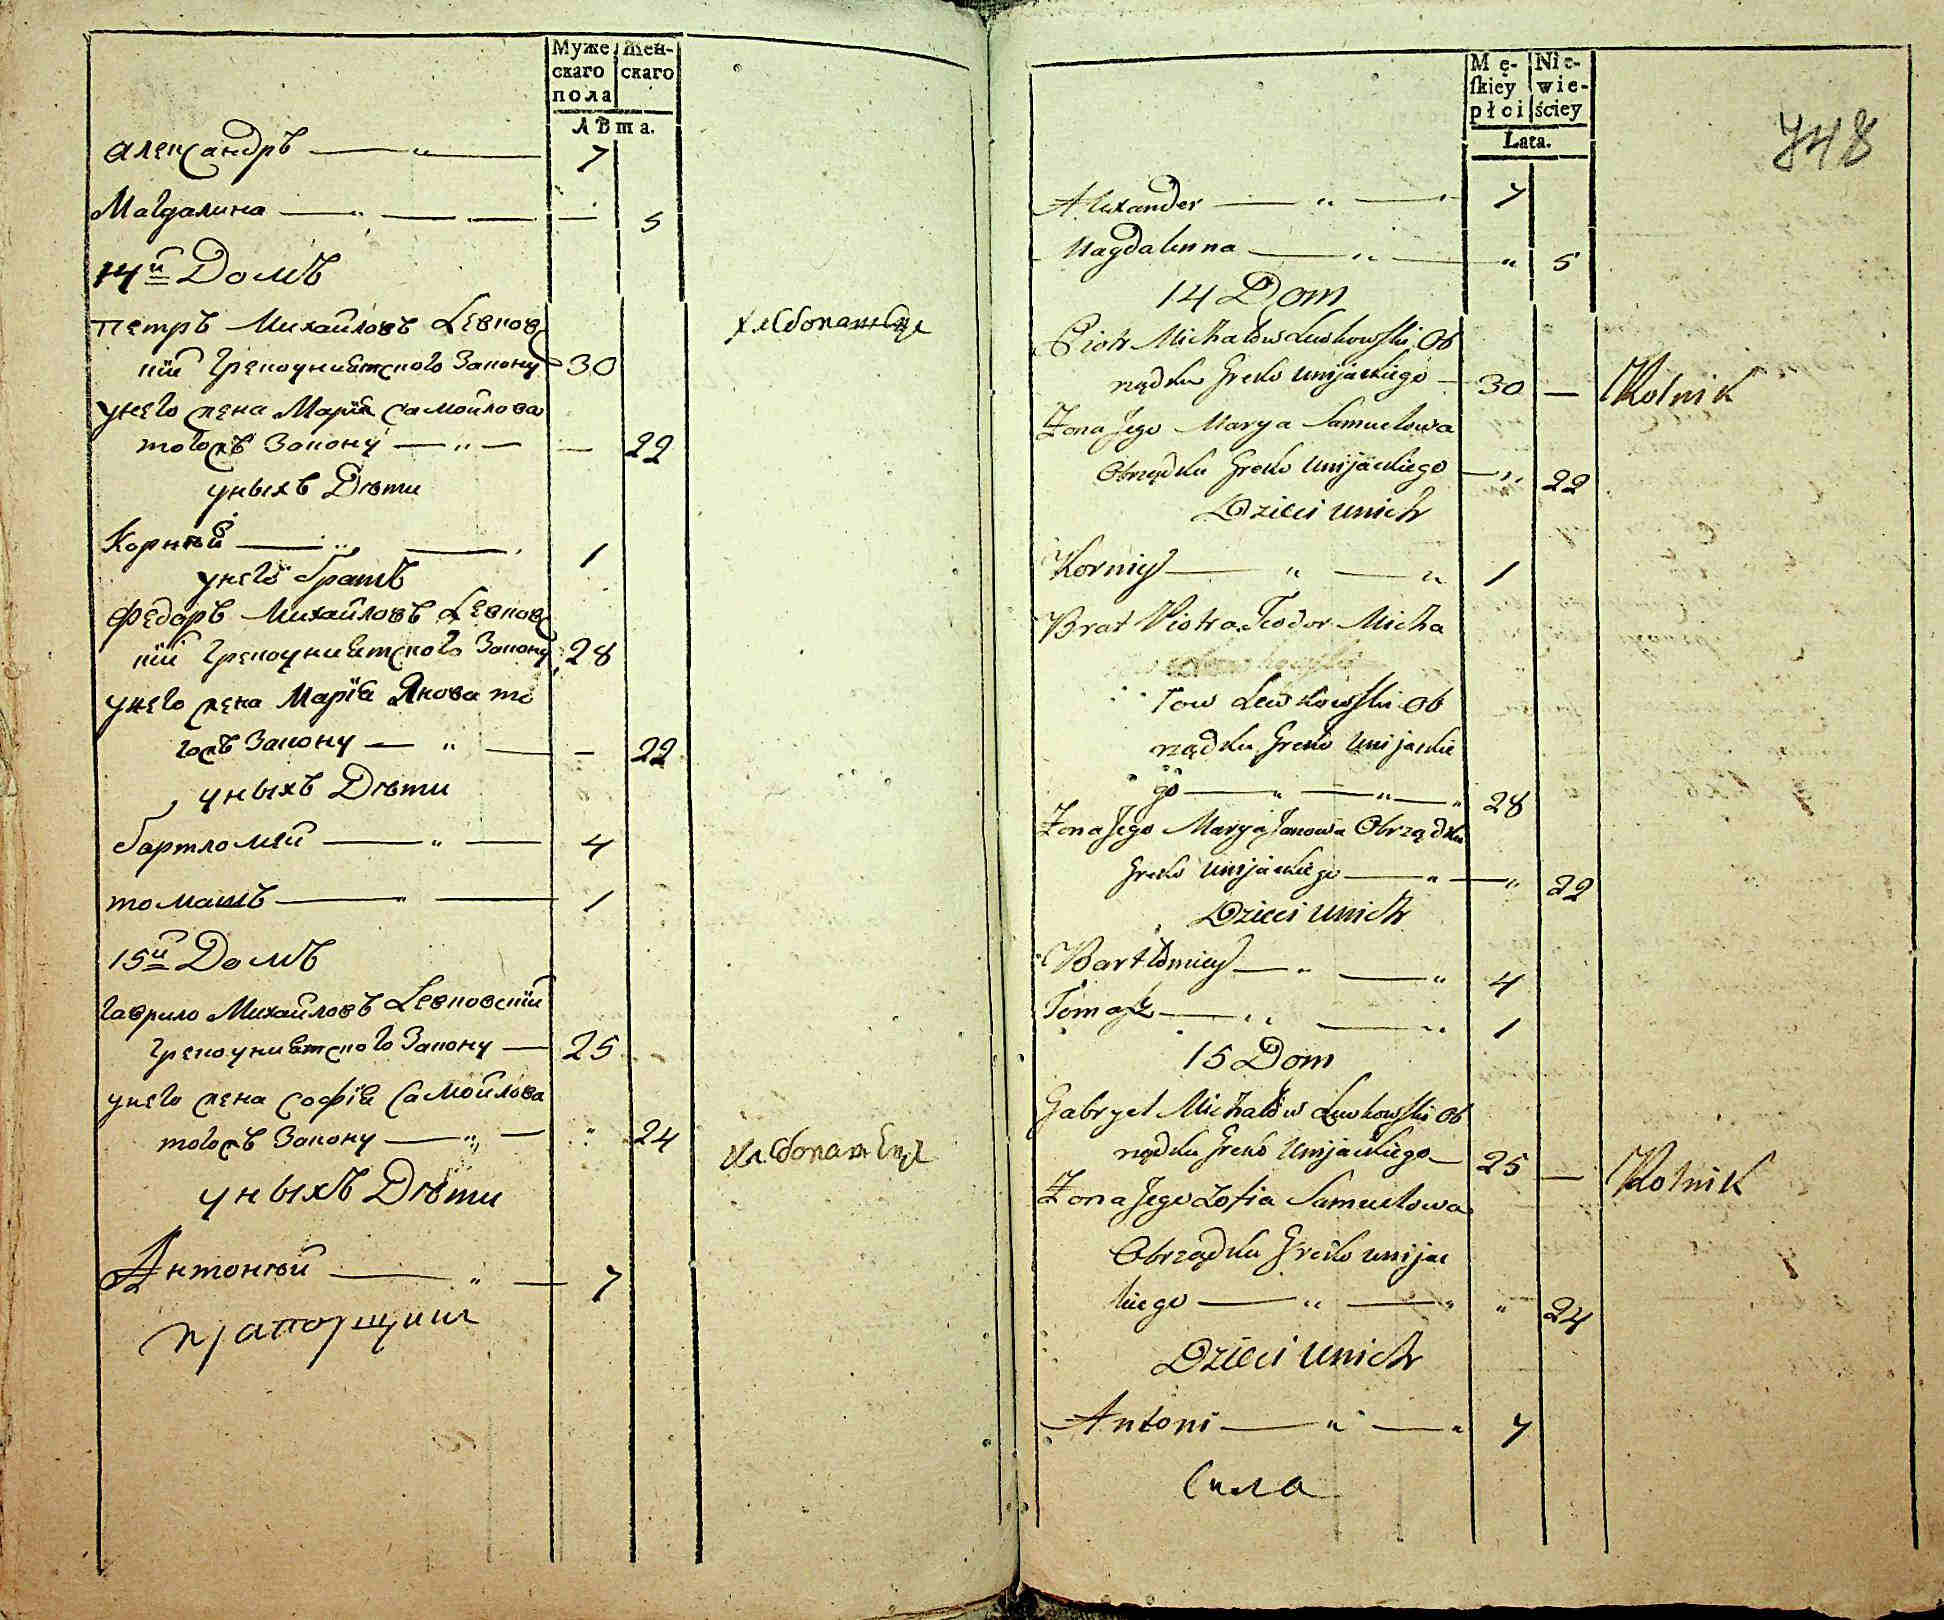 Муже- Жен-
скаго скаго
пола
Лѣта.
Александръ — „ — 7
Магдалина — „ — — — 5
14й Домъ
петръ Михайловъ Левков хлебопашецъ
кїй грекоуниятского Закону 30
унего жена Марїя самойлова
тогожъ Закону — „ — — 22
унихъ Дѣти
Корнѣй — „ — 1
унего братъ
Федоръ Михайловъ Левков
кїй грекоуниятского Закону 28
унего жена Марїя Янова то
гожъ Закону — „ — — 22
унихъ Дѣти
бартломѣй — „ — 4
томашъ — „ — 1
15й Домъ
гаврило Михайловъ Левковскїй
грекоуниятского Закону — 25
унего жена софїя самойлова
тогожъ Закону — „ — „ 24 хлебопашецъ
унихъ Дѣти
Антонѣй — „ — 7
прапорщикъ
748
Mę- Nie-
ſkiey wie-
płci ściey
Lata.
Alexander — „ — 7
Magdalenna — „ — „ 5
14 Dom
Piotr Michałow Lewkowſki Ob
rządku Greko Unijackiego — 30 — Rolnik
Zona Jego Marya Samuelowa
Obrządku Greko Unijackiego — „ 22
Dzieci unich
Korniey — „ — „ 1
Brat Piotra, Teodor Micha
łow Lewkowſki Ob
rządku Greko Unijackie
go — „ — „ — „ 28
Zona Jego Marya Janowa Obrządku
Greko Unijackiego — „ — „ 22
Dzieci unich
Bartłomiey — „ — „ 4
Tomaſz — „ — „ 1
15 Dom
Gabryel Michałow Lewkowſki Ob
rządku Greko Unijackiego — 25 — Rolnik
Zona Jego Zofia Samuelowa
Obrządku Greko unijac
kiego — „ — „ „ 24
Dzieci unich
Antoni — „ — „ 7
Сила